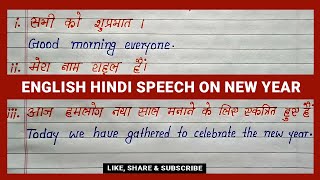 i. सभी को शुप्रभात ।
Good morning everyone.
ii. मेरा नाम राहुल हैं।
ENGLISH HINDI SPEECH ON NEW YEAR
iii. आज हमलोग नया साल मनाने के लिए एकत्रित हुए हैं
Today we have gathered to celebrate the new year.
LIKE, SHARE & SUBSCRIBE